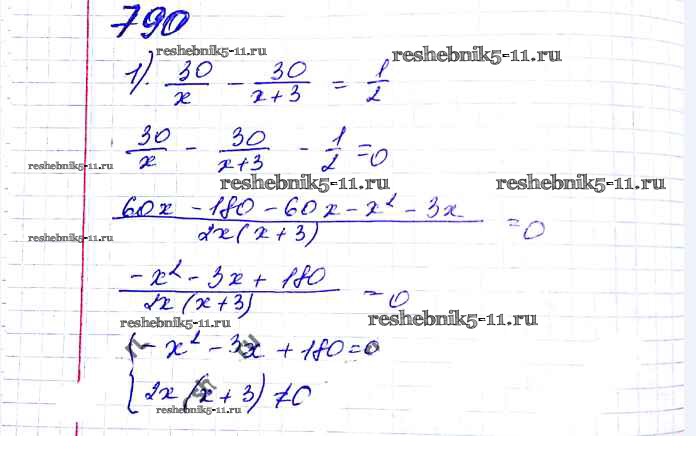 790
reshebnik5-11.ru
reshebnik5-11.ru
1). 30/x - 30/(x+3) = 1/2
30/x - 30/(x+3) - 1/2 = 0
reshebnik5-11.ru
reshebnik5-11.ru
reshebnik5-11.ru
(60x - 180 - 60x - x² - 3x)/(2x(x+3)) = 0
reshebnik5-11.ru
(-x² - 3x + 180)/(2x(x+3)) = 0
reshebnik5-11.ru
reshebnik5-11.ru
{ -x² - 3x + 180 = 0
2x(x+3) ≠ 0
reshebnik5-11.ru